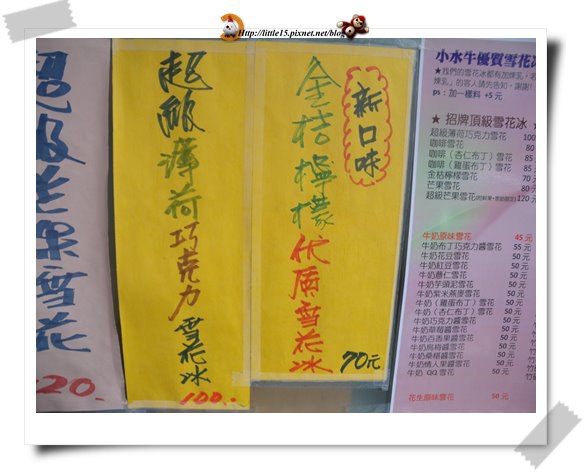 Http://little15.pixnet.net/blog
超級芒果雪花
120.
超級薄荷巧克力雪花冰
100.
新口味
金桔檸檬優質雪花冰
70元
小水牛優質雪花冰
★我們的雪花冰都有加煉乳，若
煉乳」的客人請先告知，謝謝!
ps：加一樣料 +5元
★ 招牌頂級雪花冰 ★
超級薄荷巧克力雪花 100
咖啡雪花 80
咖啡（杏仁布丁）雪花 85
咖啡（雞蛋布丁）雪花 85
金桔檸檬雪花 70
芒果雪花 80
超級芒果雪花 120元
牛奶原味雪花 45元
牛奶布丁巧克力醬雪花 55元
牛奶花豆雪花 50元
牛奶紅豆雪花 50元
牛奶薏仁雪花 50元
牛奶芋頭泥雪花 50元
牛奶紫米燕麥雪花 50元
牛奶（雞蛋布丁）雪花 50元
牛奶（杏仁布丁）雪花 50元
牛奶巧克力醬雪花 50元
牛奶草莓醬雪花 50元
牛奶百香果醬雪花 50元
牛奶烏梅醬雪花 50元
牛奶桑椹醬雪花 50元
牛奶情人果醬雪花 50元
牛奶 QQ 雪花 50元
花生原味雪花 50元